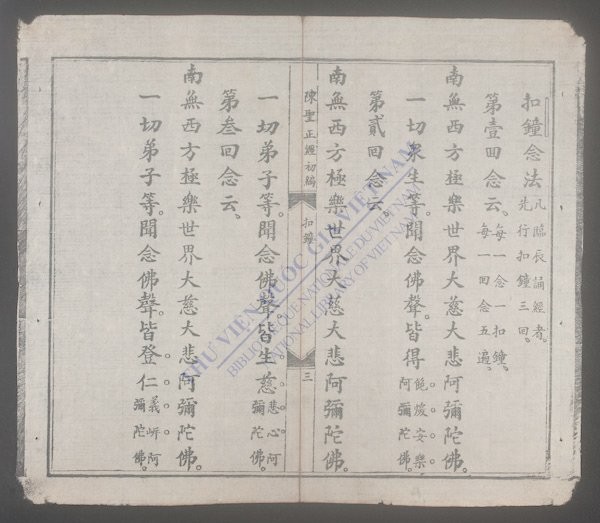 扣鐘念法 凡臨辰誦經者。先行扣鐘三回。
第壹回念云。每一念一扣鐘。每一回念五遍。
南無西方極樂世界大慈大悲阿彌陀佛。
一切衆生等。聞念佛聲。皆得飽煖安樂。阿彌陀佛。
第貳回念云。
南無西方極樂世界大慈大悲阿彌陀佛。
陳聖正經初編 扣鐘 三
一切弟子等。聞念佛聲。皆生慈悲心。阿彌陀佛。
第叁回念云。
南無西方極樂世界大慈大悲阿彌陀佛。
一切弟子等。聞念佛聲。皆登仁義岸。阿彌陀佛。
THƯ VIỆN QUỐC GIA VIỆT NAM
BIBLIOTHEQUE NATIONALE DU VIETNAM
NATIONAL LIBRARY OF VIETNAM